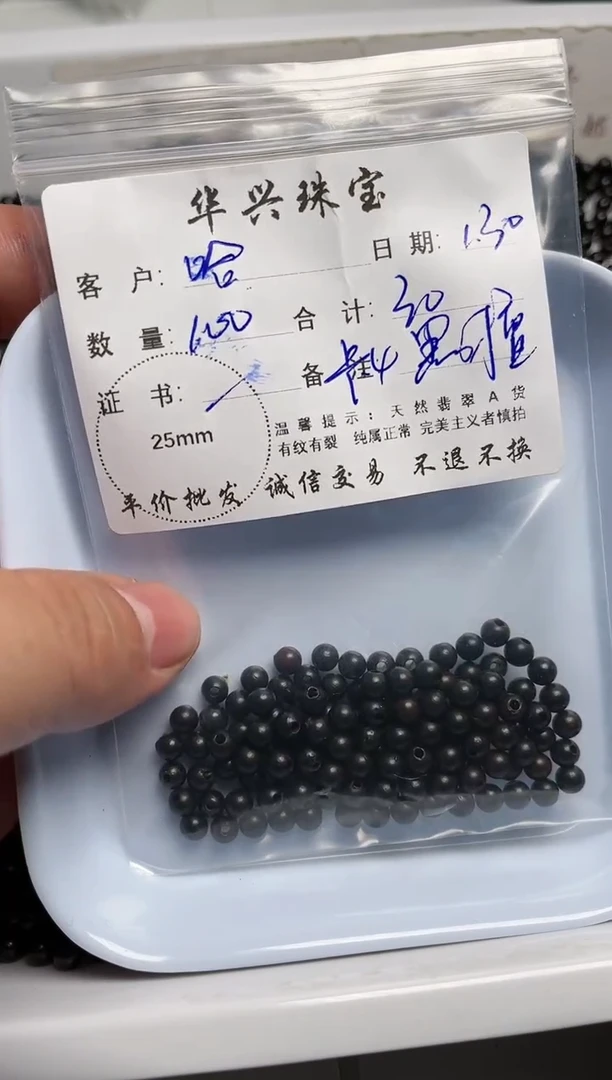 华兴珠宝
客户: 哈 日期: 1.30
数量: 合计: 30
证书: / 备 黑檀
25mm
温馨提示: 天然翡翠A货
有纹有裂 纯属正常 完美主义者慎拍
平价批发 诚信交易 不退不换